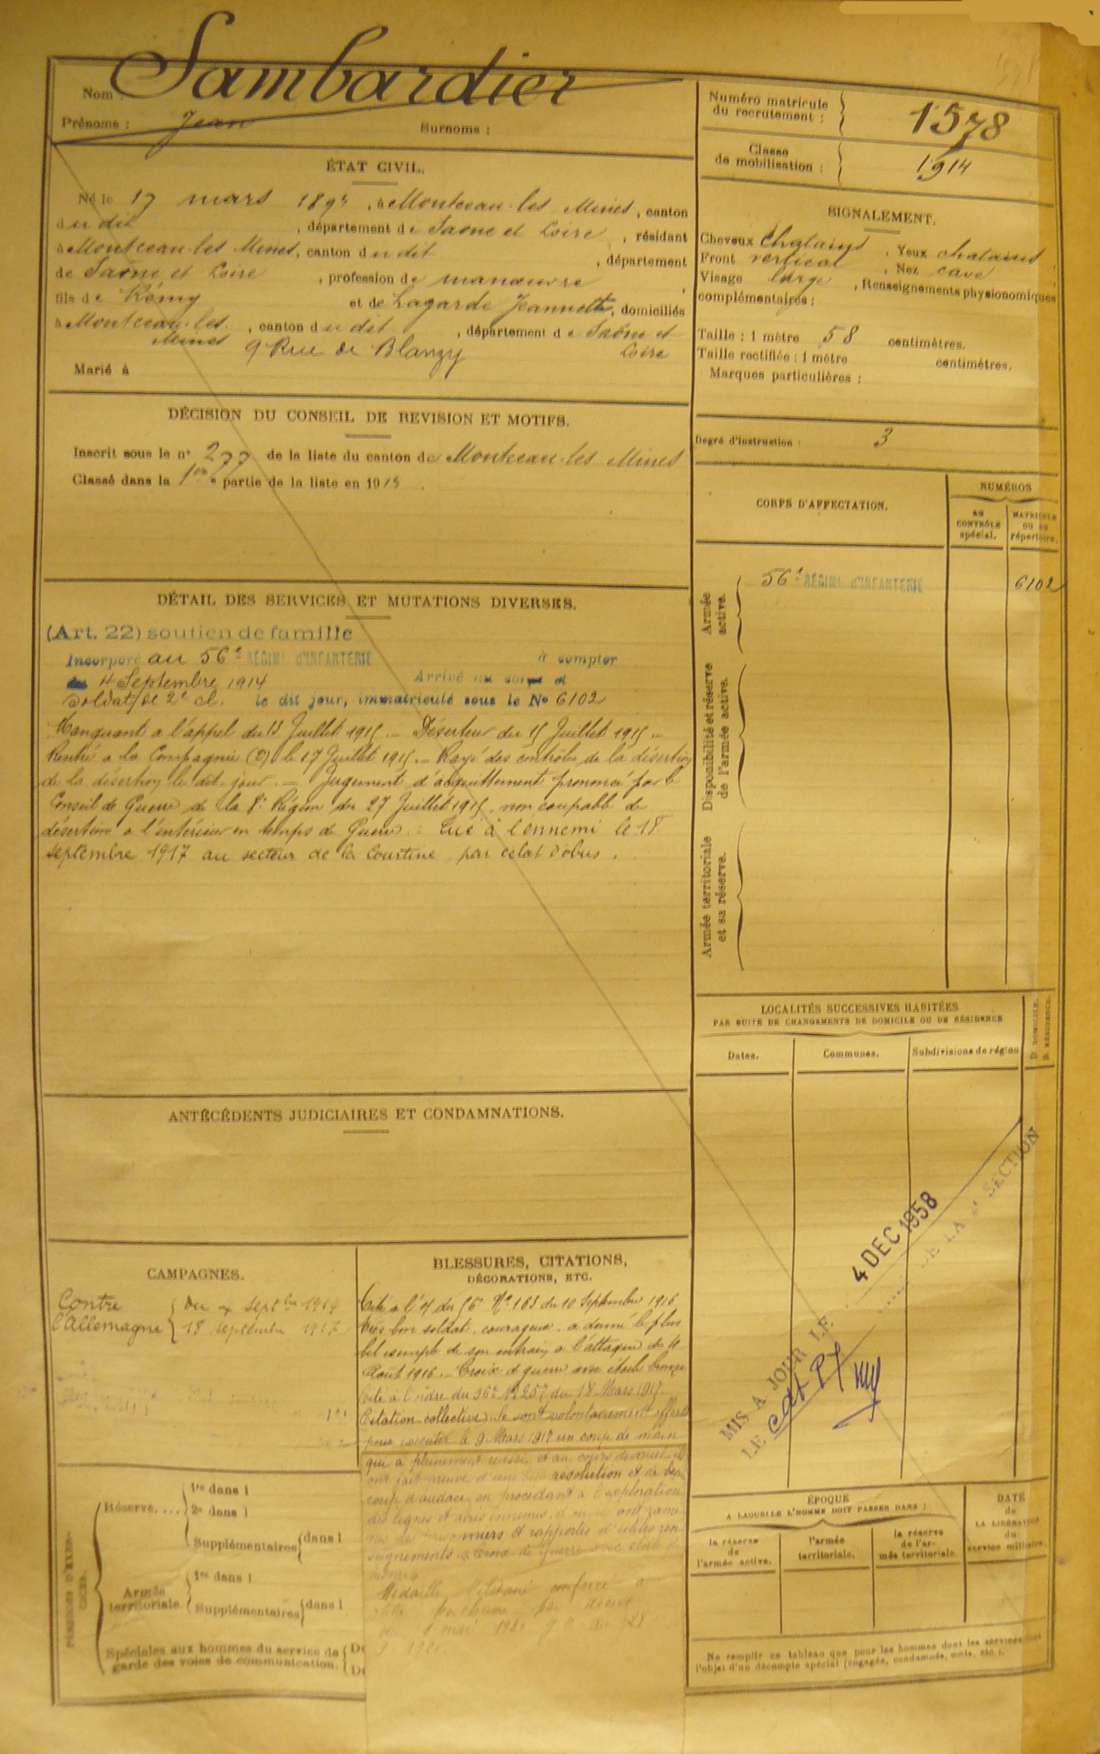 Nom : Sambardier
Prénoms : Jean Surnoms :
Numéro matricule du recrutement : 1578
Classe de mobilisation : 1914
ÉTAT CIVIL.
Né le 17 mars 189 , à Montceau-les Mines, canton
du dit , département de Saone et Loire , résidant
à Montceau les Mines, canton du dit , département
de Saône et Loire , profession de manœuvre
fils de Rémy et de Lagarde Jeannette, domiciliés
à Montceau-les- Mines , canton du dit , département de Saône et Loire
9 Rue de Blanzy
Marié à
SIGNALEMENT.
Cheveux chatains . Yeux chatains
Front vertical , Nez cave
Visage large , Renseignements physionomiques
complémentaires :
Taille : 1 mètre 58 centimètres.
Taille rectifiée : 1 mètre centimètres.
Marques particulières :
Degré d'instruction : 3
DÉCISION DU CONSEIL DE REVISION ET MOTIFS.
Inscrit sous le n° 277 de la liste du canton de Montceau-les Mines
Classé dans la 1ère partie de la liste en 1915 .
CORPS D'AFFECTATION.
NUMÉROS
AU CONTRÔLE spécial.
MATRICULE OU AU répertoire.
Armée active.
56e RÉGIMt D'INFANTERIE 6102
Disponibilité et réserve de l'armée active.
Armée territoriale et sa réserve.
DÉTAIL DES SERVICES ET MUTATIONS DIVERSES.
(Art. 22) soutien de famille
Incorporé au 56e RÉGIMt D'INFANTERIE à compter
du 4 Septembre 1914 Arrivé au corps et
soldat de 2e cl. le dit jour, immatriculé sous le No 6102
Manquant a l'appel du 13 Juillet 1915 — Déserteur du 15 Juillet 1915 —
Rentré a la Compagnie le 17 Juillet 1915 — Rayé des contrôles de la désertion
de la désertion le dit jour. — Jugement d'acquittement prononcé par le
Conseil de Guerre de la 8e Région du 27 Juillet 1915, non coupable de
désertion a l'intérieur en temps de Guerre. Tué à l'ennemi le 18
septembre 1917 au secteur de la Courtine par éclat d'obus.
LOCALITÉS SUCCESSIVES HABITÉES
PAR SUITE DE CHANGEMENTS DE DOMICILE OU DE RÉSIDENCE
Dates. Communes. Subdivisions de région
D. DOMICILE. R. RÉSIDENCE.
ANTÉCÉDENTS JUDICIAIRES ET CONDAMNATIONS.
4 DEC 1958
MIS A JOUR LE
LE
DE LA SECTION
CAMPAGNES.
Contre l'Allemagne { du 4 septbre 1914
18 septembre 1917
BLESSURES, CITATIONS,
DÉCORATIONS, ETC.
Cité a l' du 56e No 163 du 10 Septembre 1916
Très bon soldat, courageux, a donné le plus
bel exemple de son entrain a l'attaque du
Août 1916. — Croix de guerre avec étoile bronze
Cité à l'ordre du 56e No 257 du 18 Mars 1917
Citation collective : se sont volontairement offerts
pour exécuter le 9 Mars 1917 un coup de main
qui a pleinement réussi et au cours duquel ils
ont fait preuve d'une resolution et de beau
coup d'audace, en procédant à l'exploration
des lignes
prisonniers et rapporté d'utiles ren
seignements. Croix de Guerre avec étoile de
bronze
Médaille Militaire conférée a
titre posthume par décret
PÉRIODES D'EXERCICES.
Réserve..... 1re dans l
2e dans l
Supplémentaires { dans l
Armée territoriale. 1re dans l
Supplémentaires { dans l
Spéciales aux hommes du service de
garde des voies de communication.
ÉPOQUE
A LAQUELLE L'HOMME DOIT PASSER DANS :
la réserve de l'armée active. l'armée territoriale. la réserve de l'armée territoriale.
DATE de LA LIBÉRATION du service militaire.
Ne remplir ce tableau que pour les hommes dont les services
l'objet d'un décompte spécial (engagés, condamnés, omis, etc.).